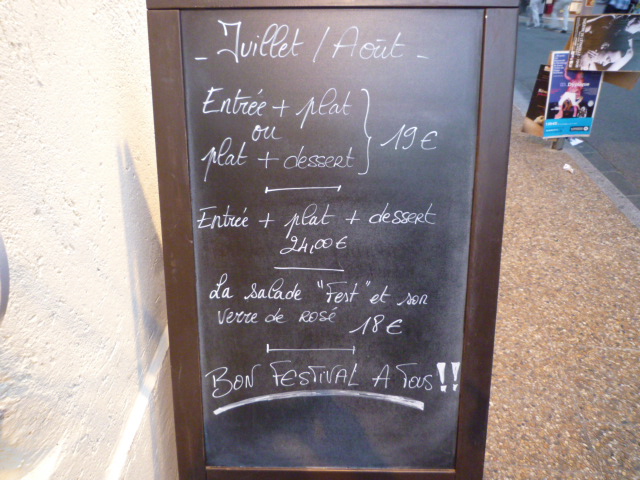 - Juillet / Août -
Entrée + plat
ou
plat + dessert
19 €
Entrée + plat + dessert
24,00 €
La salade "Fest" et son
verre de rosé 18 €
BON FESTIVAL A TOUS !!